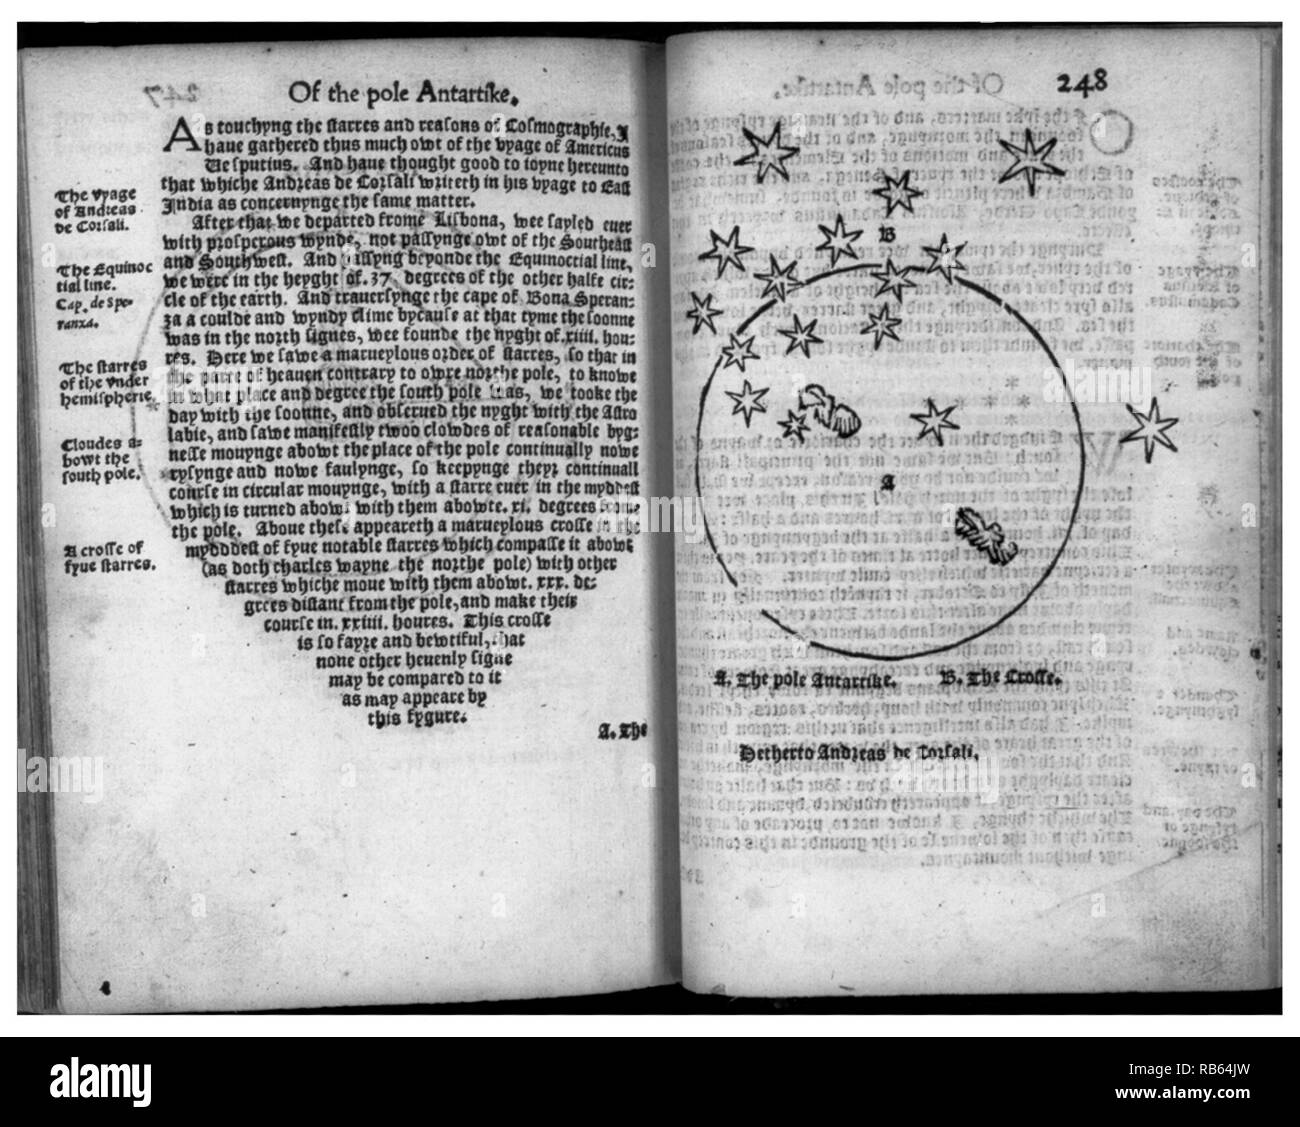 Of the pole Antartike.
As touchyng the starres and reasons of Cosmographie, I
haue gathered thus much owt of the vyage of Americus
Vesputius. And haue thought good to ioyne hereunto
that whiche Andreas de Corsali writeth in his vyage to East
India as concernynge the same matter.
The vyage
of Andreas
de Corsali.
After that we departed frome Lisbona, wee sayled euer
with prosperous wynde, not passynge owt of the Southeast
and Southwest. And passyng beyonde the Equinoctial line,
we were in the heyght of. 37. degrees of the other halfe cir=
cle of the earth. And trauersynge the cape of Bona Speran=
za a coulde and wyndy clime bycause at that tyme the soonne
was in the north signes, wee founde the nyght of.xiiii. hou=
res. Here we sawe a marueylous order of starres, so that in
the parte of heauen contrary to owre northe pole, to knowe
in what place and degree the south pole was, we tooke the
day with the soonne, and obserued the nyght with the Astro
labie, and sawe manifestly twoo clowdes of reasonable byg=
nesse mouynge abowt the place of the pole continually nowe
rysynge and nowe faulynge, so keepynge theyr continuall
course in circular mouynge, with a starre euer in the myddest
which is turned abowt with them abowte. xi. degrees frome
the pole. Aboue these appeareth a marueylous crosse in the
myddest of fyue notable starres which compasse it abowt
(as doth charles wayne the northe pole) with other
starres whiche moue with them abowt. xxx. de=
grees distant from the pole, and make their
course in. xxiiii. houres. This crosse
is so fayre and bewtiful, that
none other heuenly signe
may be compared to it
as may appeare by
this fygure.
The Equinoc
tial line.
Cap. de Spe-
ranza.
The starres
of the vnder
hemispherie.
Cloudes a=
bowt the
south pole.
A crosse of
fyue starres.
A. The
248
B
A
A. The pole Antartike. B. The Crosse.
Hetherto Andreas de Corsali.
alamy
Image ID: RB64JW
www.alamy.com